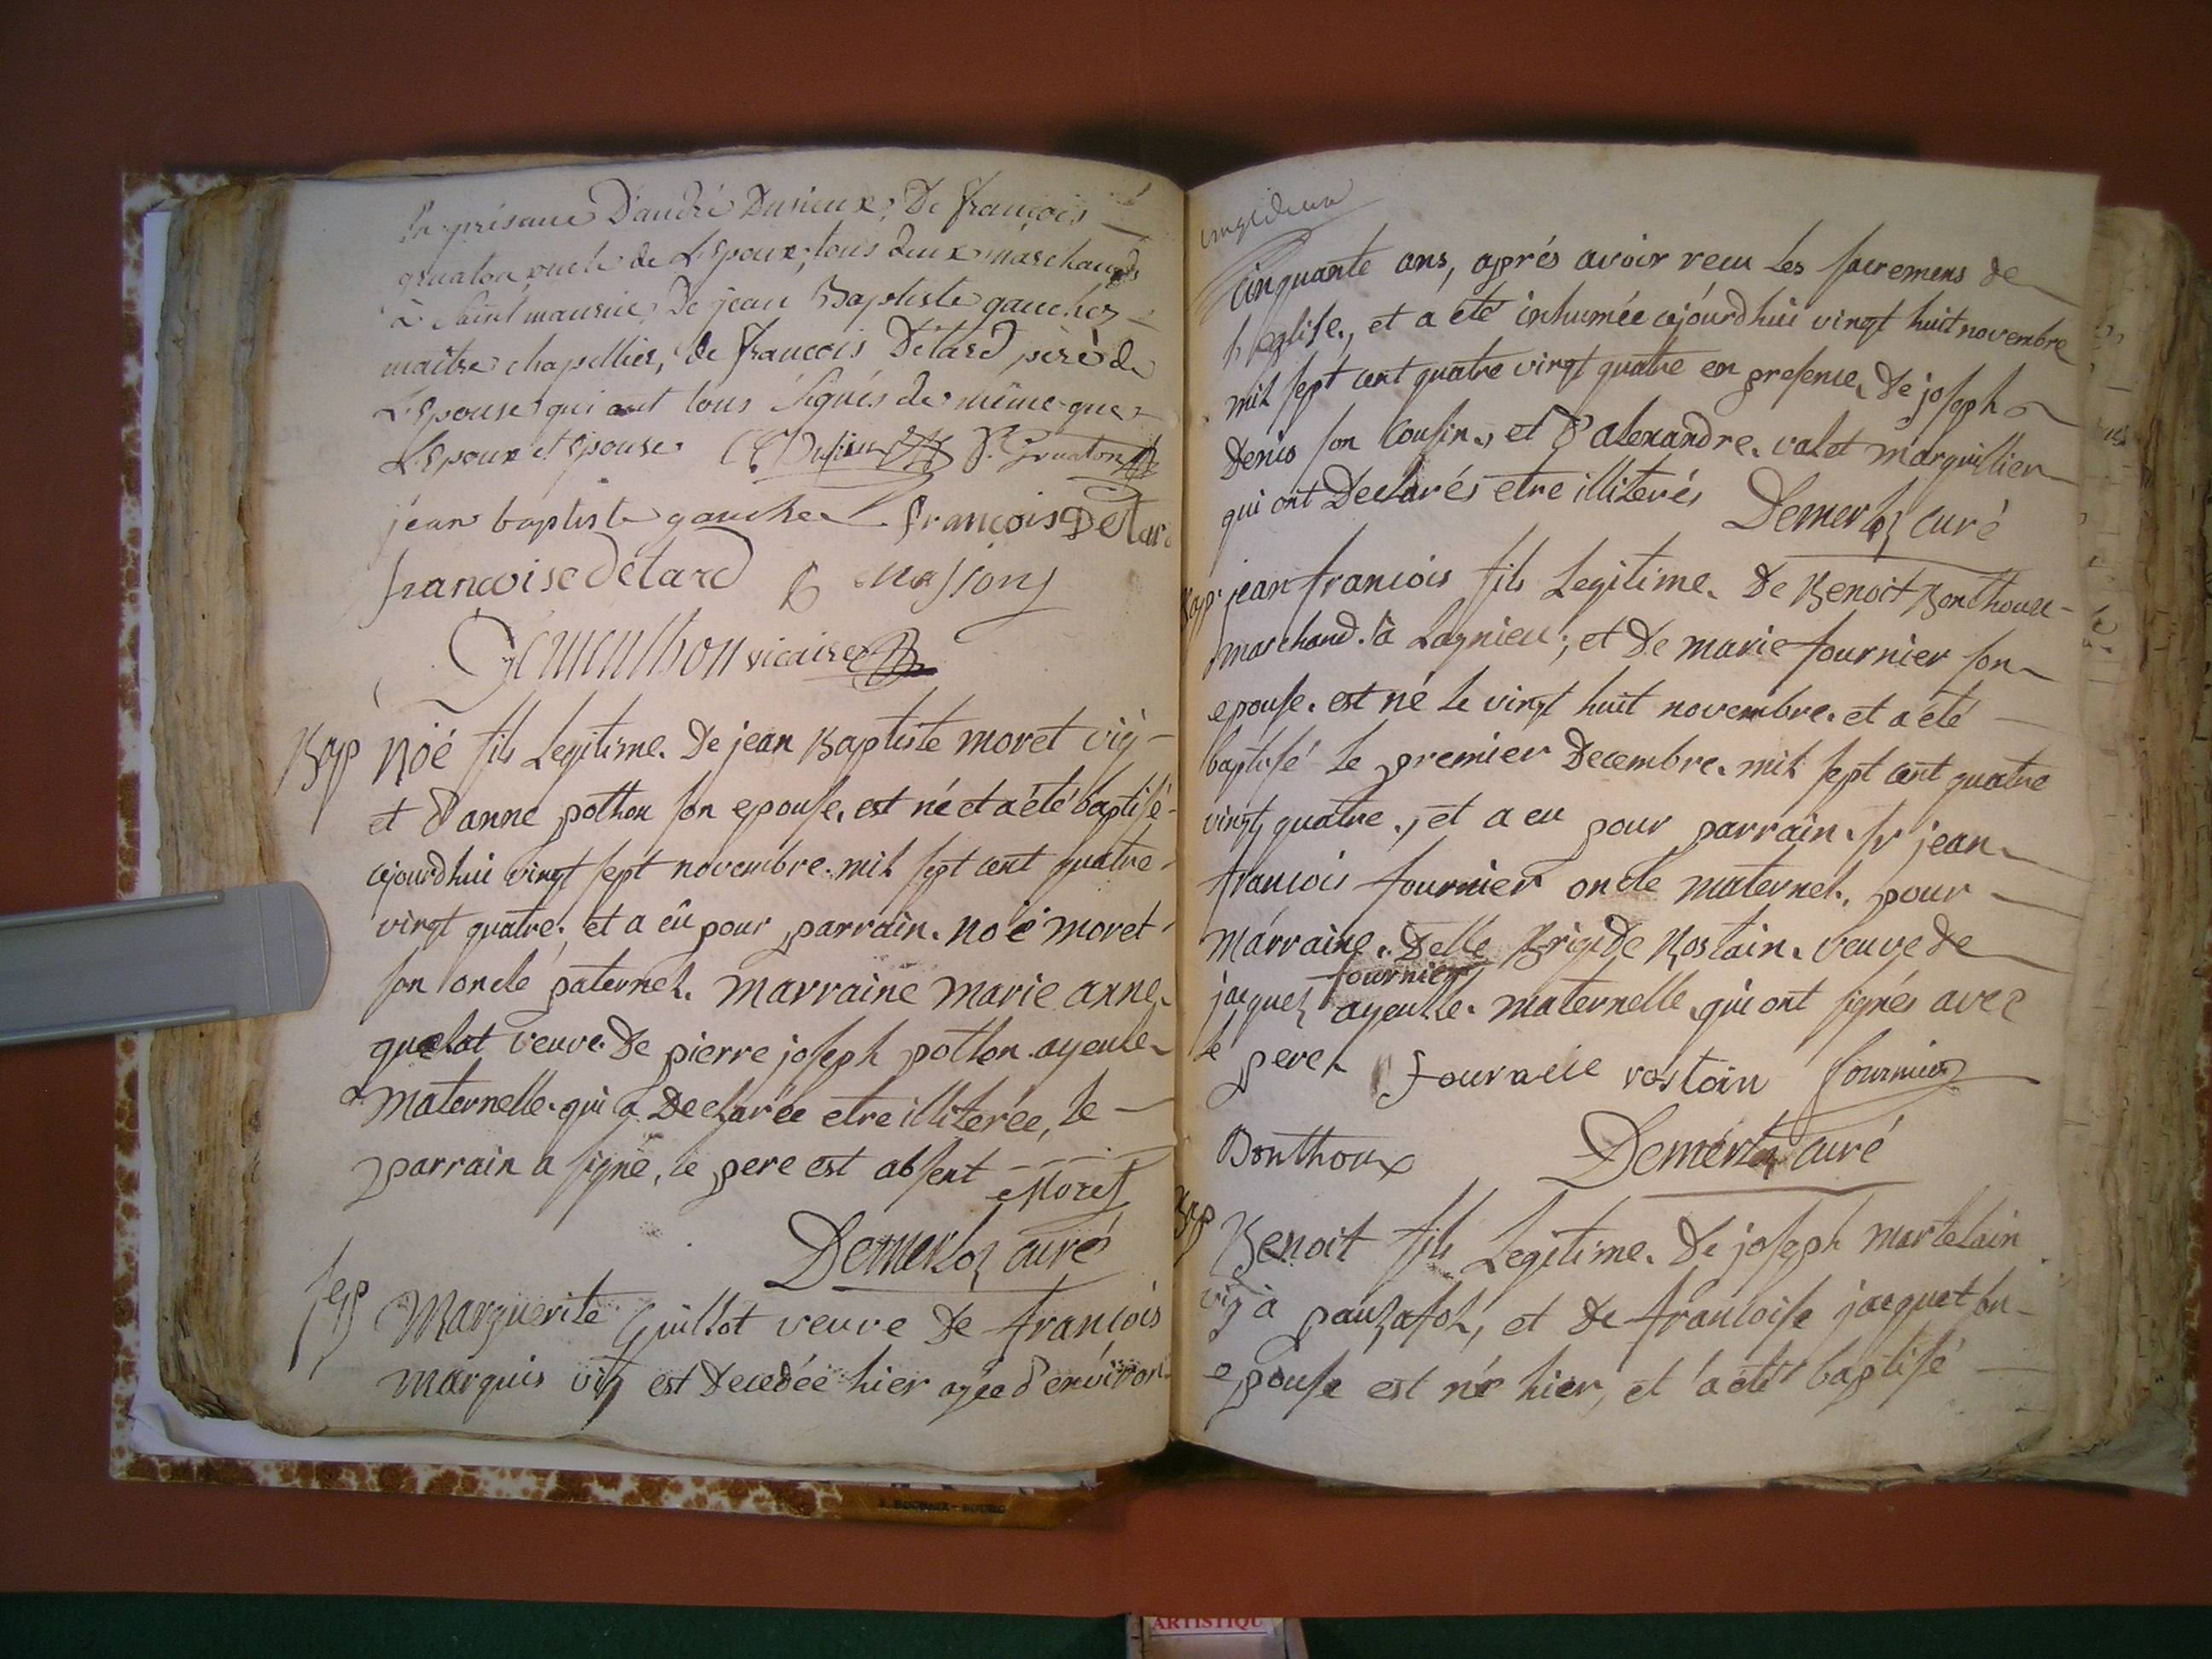 En présance D'andre Dusieux, De françois
gruaton oncle de L'Epoux, tous deux marchands
à Saint maurice, De jean Baptiste gaucher
maitre chapellier, de françois Détard père de
L'Epouse qui ont tous signés de même que
L'Epoux et Epouse Dusieux f. Gruaton
jean baptiste gaucher françois Detard
francoise détard
vicaire
Bap Noé fils Legitime. De jean Baptiste moret vig
et d'anne pothon son epouse, est né et a été baptisé
ajourdhui vingt sept novembre. mil sept cent quatre
vingt quatre, et a eû pour parrain. noé moret
son oncle paternel. marraine marie anne
quelot veuve De pierre joseph pothon ayeule
maternelle. qui a Declarée etre illiterée, le
parrain a signé, le pere est absent Moret
Demerloz curé
sep Marguerite Guillot veuve De francois
marquis vig est Decedée hier agée d'environ
vingtdeux
Cinquante ans, aprés avoir recu les sacremens de
l'eglise, et a été inhumée ajourdhui vingt huit novembre
mil sept cent quatre vingt quatre en presence De joseph
Denis son Cousin, et d'alexandre. valet marguillier
qui ont Declarés etre illiterés Demerloz curé
Bap jean francois fils Legitime. De Benoit Bonthoux
marchand à Lagnieu, et De marie fournier son
epouse. est né le vingt huit novembre. et a été
baptisé le premier Decembre. mil sept cent quatre
vingt quatre, et a eu pour parrain. sr jean
francois fournier oncle maternel, pour
marraine. Delle Brigide Rostain. veuve de
fournier
jacquez ayeulle. maternelle, qui ont signés avec
le pere fournie rostain fournier
Bonthoux Demerloz curé
Bap Benoit fils Legitime. De joseph martelain
vig à pauzafol, et de francoise jacquet son
epouse est né hier, et a été baptisé
ARTISTIQU